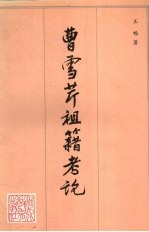 曹雪芹祖籍考论
王畅著